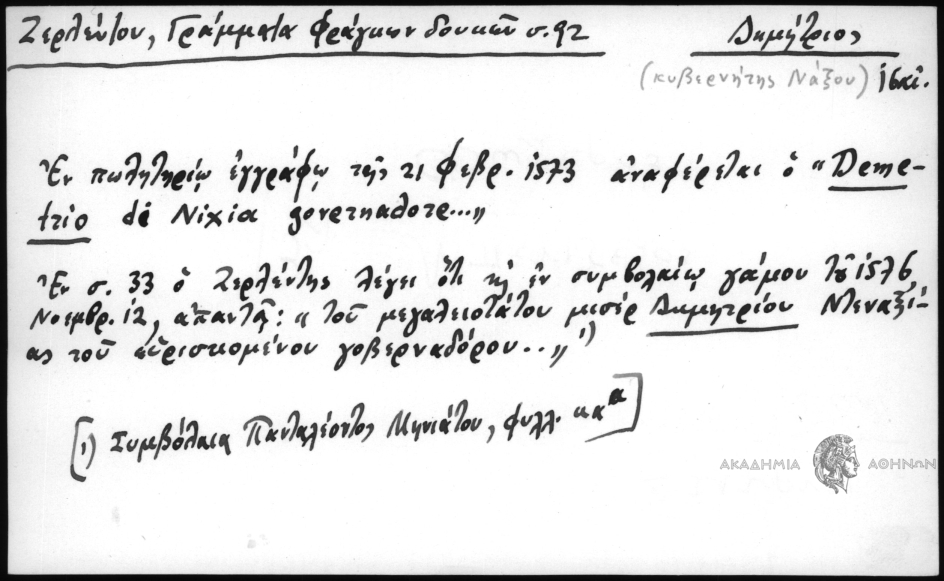 Ζερλέντου, Γράμματα Φράγκων δουκῶν σ. 92 Δημήτριος
(κυβερνήτης Νάξου) ἰδκι.
Ἐν πωλητηρίῳ ἐγγράφῳ τῆς 21 Φεβρ. 1573 ἀναφέρεται ὁ "Deme-
trio di Nixia governadore...„
Ἐν σ. 33 ὁ Ζερλέντης λέγει ὅτι κ̣ ἐν συμβολαίῳ γάμου τοῦ 1576,
Νοεμβρ. 12, ἀπαντᾷ: "τοῦ μεγαλειοτάτου μισέρ Δημητρίου Ντεναξί-
ας τοῦ εὑρισκομένου γοβερναδόρου..„ 1)
[1) Συμβόλαια Πανταλέοντος Μηνιάτου, φυλλ. κα α]
ΑΚΑΔΗΜΙΑ ΑΘΗΝΩΝ